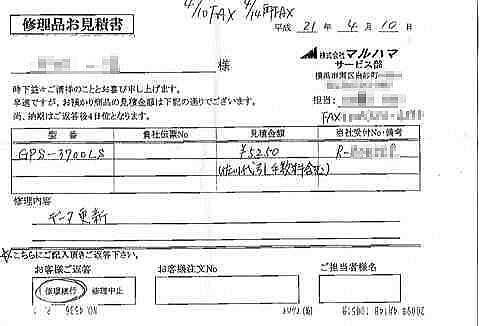 4/10 FAX 4/14 再FAX
修理品お見積書
平成 21年 4月 10日
様
株式会社 マルハマ
サービス部
時下益々ご清祥のこととお喜び申し上げます。
早速ですが、お預かり商品の見積金額は下記の通りでございます。
尚、納期はご返答後4日位となります。
担当:
FAX
型番 貴社伝票No 見積金額 当社受付No・備考
GPS-3700LS ¥5250 R-
代引手数料含む)
修理内容
データ更新
こちらにご記入頂きご返答下さい。
お客様ご返答 お客様注文No ご担当者様名
修理続行 修理中止
2009年 4月14日 10時51分 NO.4536 P. 1